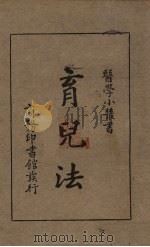 醫學小叢書
育兒法
印書館發行